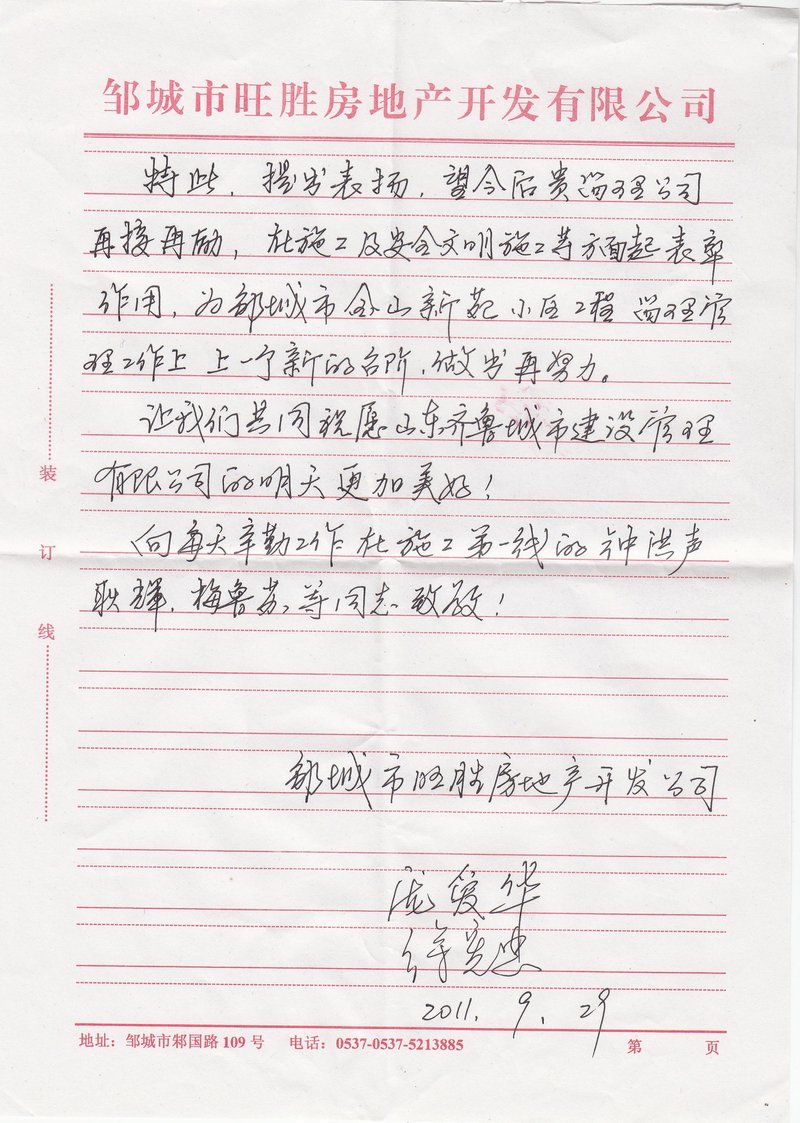 邹城市旺胜房地产开发有限公司
特此，提出表扬，望今后贵监理公司
再接再励，在施工及安全文明施工等方面起表率
作用，为邹城市金山新苑小区工程监理管
理工作上上一个新的台阶，做出再努力。
让我们共同祝愿山东齐鲁城市建设管理
有限公司的明天更加美好！
向每天辛勤工作在施工第一线的钟洪声
耿辉，梅鲁苏，等同志致敬！
邹城市旺胜房地产开发公司
庞爱华
徐宪忠
2011.9.29
装
订
线
地址：邹城市邾国路109号 电话：0537-0537-5213885 第 页